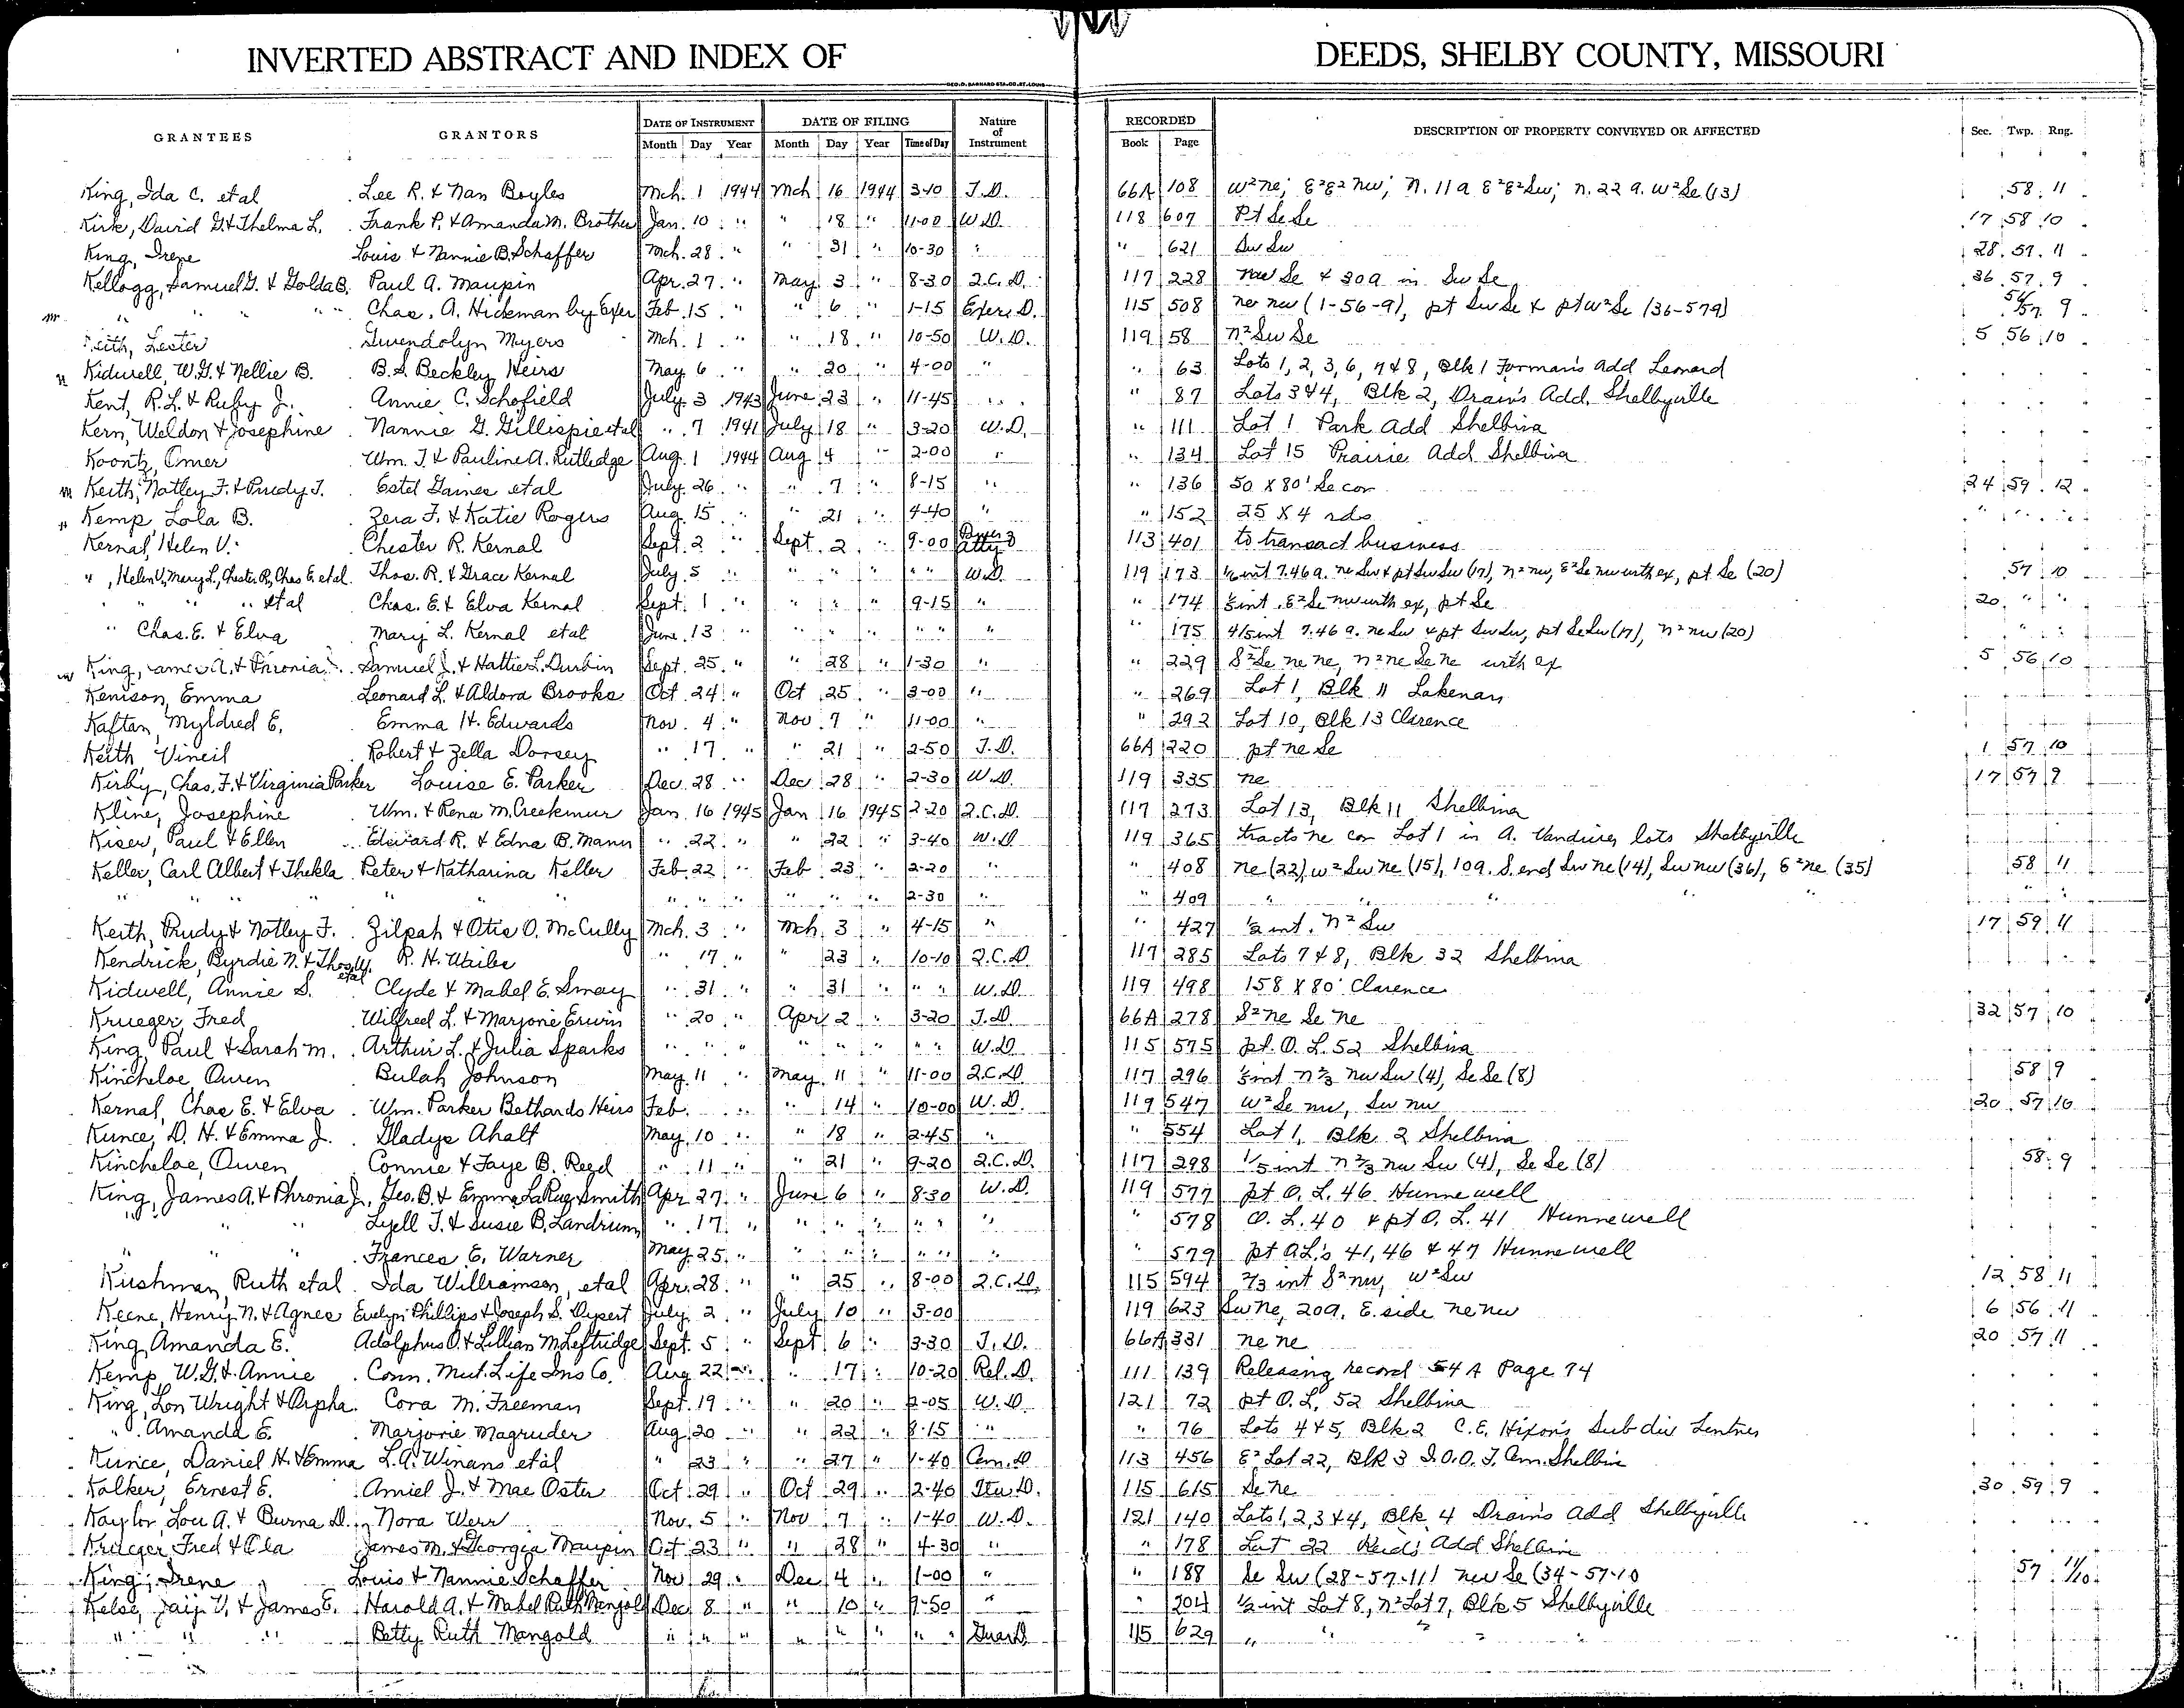 INVERTED ABSTRACT AND INDEX OF DEEDS, SHELBY COUNTY, MISSOURI
GEO. D. BARNARD STA. CO. ST. LOUIS
GRANTEES GRANTORS DATE OF INSTRUMENT DATE OF FILING Nature of Instrument RECORDED DESCRIPTION OF PROPERTY CONVEYED OR AFFECTED Sec. Twp. Rng.
Month Day Year Month Day Year Time of Day Book Page
King, Ida C. etal Lee R. & Nan Boyles Mch. 1 1944 Mch 16 1944 3-10 T.D. 66A 108 W²ne; E²E² nw; N. 11 a E²E²Sw; n. 22 a. W²Se (13) 58 11
Kirk, David G. & Thelma L. Frank P. & Amanda M. Brother Jan. 10 " " 18 " 11-00 W.D. 118 607 Pt Se Se 17 58 10
King, Irene Louis & Nannie B. Schaffer Mch. 28 " " 31 " 10-30 " " 621 Sw Sw 28 57 11
Kellogg, Samuel G. & Golda B. Paul A. Maupin Apr. 27 " May 3 " 8-30 Q.C.D. 117 228 nw Se & 30a in Sw Se 36 57 9
" " " " Chas. A. Hickman by Exer Feb. 15 " " 6 " 1-15 Exers D. 115 508 ne nw (1-56-9), pt Sw Se & pt W²Se (36-57-9) 56/57 9
Keith, Lester Gwendolyn Myers Mch. 1 " " 18 " 10-50 W.D. 119 58 N²Sw Se 5 56 10
Kidwell, W.G. & Nellie B. B.S. Beckley Heirs May 6 " " 20 " 4-00 " " 63 Lots 1, 2, 3, 6, 7 & 8, Blk 1 Forman's Add Leonard
Kent, R.L. & Ruby J. Annie C. Schofield July 3 1943 June 23 " 11-45 " " 87 Lots 3 & 4, Blk 2, Drain's Add. Shelbyville
Kern, Weldon & Josephine Nannie G. Gillispie etal " 7 1941 July 18 " 3-20 W.D. " 111 Lot 1 Park Add Shelbina
Koontz, Omer Wm. T. & Pauline A. Rutledge Aug. 1 1944 Aug 4 " 2-00 " " 134 Lot 15 Prairie Add Shelbina
Keith, Notley F. & Prudy T. Estel Gaines etal July 26 " " 7 " 8-15 " " 136 50 X 80' Se cor 24 59 12
Kemp, Lola B. Zera F. & Katie Rogers Aug. 15 " " 21 " 4-40 " " 152 25 X 4 rds " " "
Kernal, Helen V. Chester R. Kernal Sept. 2 " Sept. 2 " 9-00 Power of Atty 113 401 to transact business
" , Helen V, Mary L., Chester R, Chas E. etal Thos. R. & Grace Kernal July 5 " " " " " " W.D. 119 173 1/6 int 7.46 a. ne Sw & pt Sw Sw (17), n² nw, E²Se nw with ex, pt Se (20) 57 10
" " " " etal Chas. E. & Elva Kernal Sept. 1 " " " " 9-15 " " 174 1/5 int. E²Se nw with ex, pt Se 20 " "
" Chas. E. & Elva Mary L. Kernal etal June 13 " " " " " " " " 175 4/5 int 7.46 a. ne Sw & pt Sw Sw, pt Se Sw (17), N² nw (20) " "
King, James A. & Phronia J. Samuel J. & Hattie L. Durbin Sept. 25 " " 28 " 1-30 " " 229 S²Se ne ne, N²ne Se ne with ex 5 56 10
Kenison, Emma Leonard L. & Aldora Brooks Oct. 24 " Oct 25 " 3-00 " " 269 Lot 1, Blk 11 Lakenan
Kaftan, Myldred E. Emma H. Edwards Nov. 4 " Nov. 7 " 11-00 " " 292 Lot 10, Blk 13 Clarence
Keith, Vineil Robert & Zella Dorsey " 17 " " 21 " 2-50 T.D. 66A 220 pt ne Se 1 57 10
Kirby, Chas. F. & Virginia Parker Louise E. Parker Dec. 28 " Dec 28 " 2-30 W.D. 119 335 ne 17 57 9
Kline, Josephine Wm. & Rena M. Creekmur Jan. 16 1945 Jan 16 1945 2-20 Q.C.D. 117 273 Lot 13, Blk 11 Shelbina
Kiser, Paul & Ellen Edward R. & Edna B. Mann " 22 " " 22 " 3-40 W.D 119 365 tracts ne cor Lot 1 in A. Vandiver lots Shelbyville
Keller, Carl Albert & Thekla Peter & Katharina Keller Feb. 22 " Feb 23 " 2-20 " " 408 ne (22), W² Sw ne (15), 10a. S. end Sw ne (14), Sw nw (36), E²ne (35) 58 11
" " " " " " " " " " 2-30 " " 409 " " " " "
Keith, Prudy & Notley F. Zilpah & Otis O. McCully Mch. 3 " Mch. 3 " 4-15 " " 427 1/2 int. N² Sw 17 59 11
Kendrick, Byrdie N. & Thos. W. etal R. H. Waibe " 17 " " 23 " 10-10 Q.C.D. 117 285 Lots 7 & 8, Blk 32 Shelbina
Kidwell, Annie S. Clyde & Mabel E. Smay " 31 " " 31 " " " W.D. 119 498 158 X 80' Clarence
Krueger, Fred Wilfred L. & Marjorie Erwin " 20 " Apr. 2 " 3-20 T.D. 66A 278 S²ne Se ne 32 57 10
King, Paul & Sarah M. Arthur L. & Julia Sparks " " " " " " " " W.D. 115 575 pt. O. L. 52 Shelbina
Kincheloe, Owen Bulah Johnson May 11 " May 11 " 11-00 Q.C.D. 117 296 1/5 int N 2/3 nw Sw (4), Se Se (8) 58 9
Kernal, Chas E. & Elva Wm. Parker Bethards Heirs Feb. " " 14 " 10-00 W.D. 119 547 W²Se nw, Sw nw 20 57 10
Kunce, D. H. & Emma J. Gladys Ahalt May 10 " " 18 " 2-45 " " 554 Lot 1, Blk 2 Shelbina
Kincheloe, Owen Connie & Faye B. Reed " 11 " " 21 " 9-20 Q.C.D. 117 298 1/5 int N 2/3 nw Sw (4), Se Se (8) 58 9
King, James A. & Phronia J. Geo. B. & Emma LaRue Smith Apr 27 " June 6 " 8-30 W.D. 119 577 pt O. L. 46 Hunnewell
" " " Lyell T. & Susie B. Landrum " 17 " " " " " " " " 578 O. L. 40 & pt O. L. 41 Hunnewell
" " " Frances E. Warner May 25 " " " " " " " " 579 pt O.L.'s 41, 46 & 47 Hunnewell
Kushman, Ruth etal Ida Williamson, etal Apr. 28 " " 25 " 8-00 Q.C.D. 115 594 2/3 int S²nw, W²Sw 12 58 11
Keene, Henry N. & Agnes Evelyn Phillips & Joseph S. Dysert July 2 " July 10 " 3-00 119 623 Sw ne, 20a. E. side ne nw 6 56 11
King, Amanda E. Adolphus O. & Lillian M. Leftridge Sept. 5 " Sept 6 " 3-30 T.D. 66A 331 ne ne 20 57 11
Kemp, W.G. & Annie Conn. Mut. Life Ins Co. Aug 22 " " 17 " 10-20 Rel. D. 111 139 Releasing record 54 A Page 74
King, Lon Wright & Orpha Cora M. Freeman Sept. 19 " " 20 " 2-05 W.D. 121 72 pt O. L. 52 Shelbina
" Amanda E. Marjorie Magruder Aug 20 " " 22 " 8-15 " " 76 Lots 4 & 5, Blk 2 C.E. Hixon's Sub div Lentner
Kunce, Daniel H. & Emma L.A. Winans etal " 23 " " 27 " 1-40 Cem. D 113 456 E² Lot 22, Blk 3 I.O.O.F. Cem. Shelbina
Kolker, Ernest E. Amiel J. & Mae Oster Oct. 29 " Oct 29 " 2-40 115 615 Se ne 30 59 9
Kaylor, Lou A. & Burna D. Nora Werr Nov. 5 " Nov 7 " 1-40 W.D. 121 140 Lots 1, 2, 3 & 4, Blk 4 Drain's Add Shelbyville
Krueger, Fred & Ola James M. & Georgia Maupin Oct 23 " " 28 " 4-30 " " 178 Lot 22 Reid's Add Shelbina
King, Irene Louis & Nannie Schaffer Nov 29 " Dec 4 " 1-00 " " 188 Se Sw (28-57-11) nw Se (34-57-10 57 11/10
James E. Harold A. & Mabel Ruth Mangold Dec 8 " " 10 " 9-50 " " 204 1/2 int Lot 8, N²Lot 7, Blk 5 Shelbyville
" " " Betty Ruth Mangold " " " " " " " " Guar D. 115 629 " " " " "